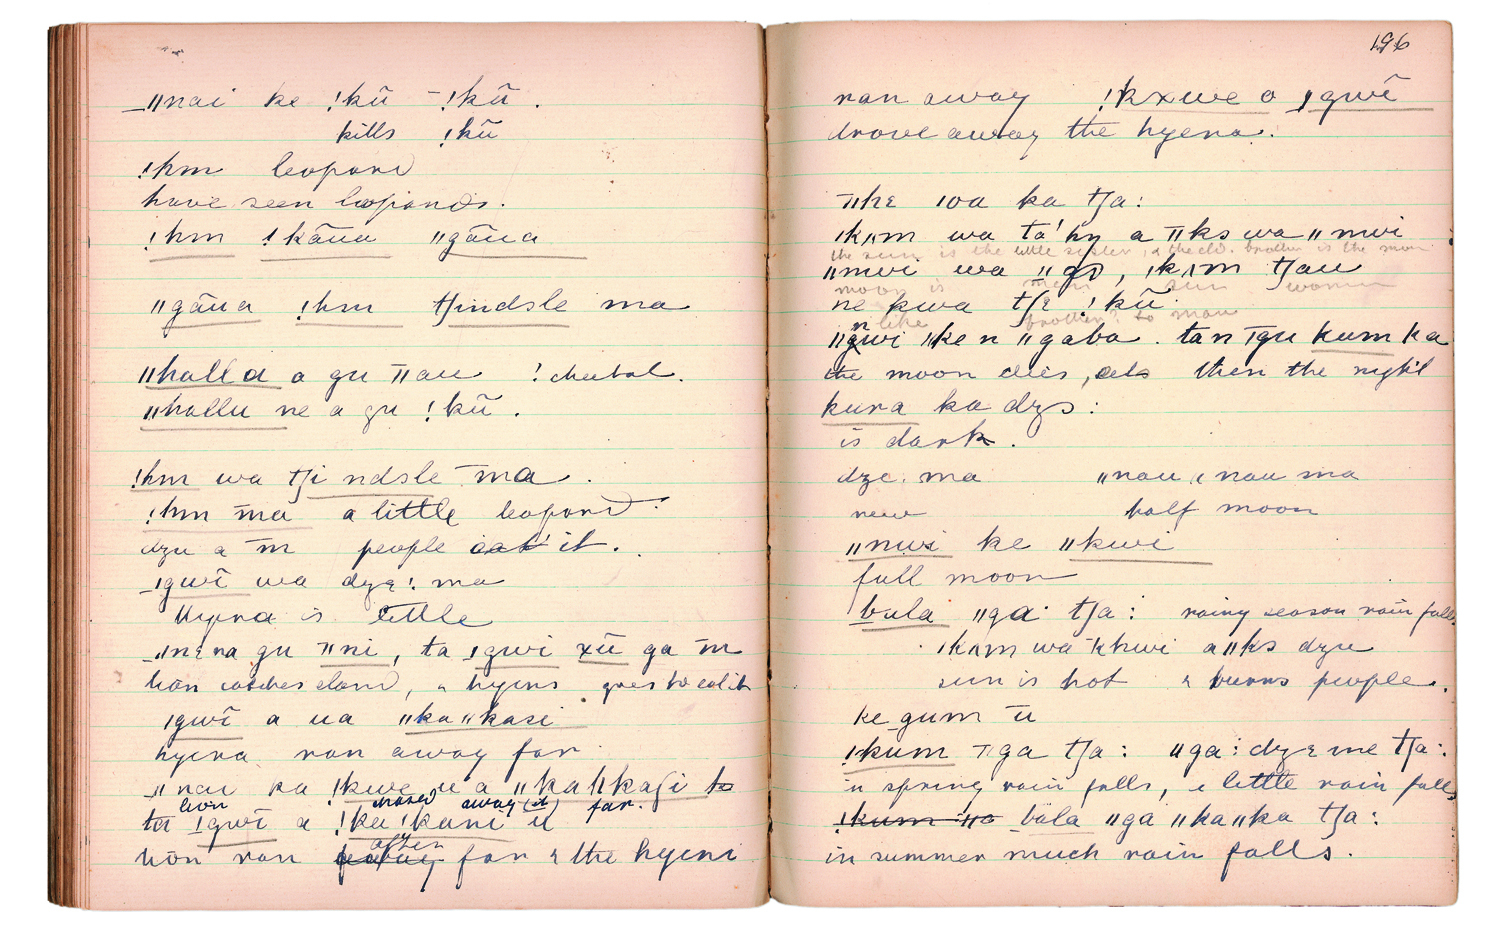 ǁnai ke !kũ – !kũ .
kills !kũ
!hm leopard
have seen leopards.
!hm !kãua ǁgãua
ǁgãua !hm tʃindsle ma
ǁhalla a gu ᴨau !
ǁhallu ne a gu !kũ .
!hm wa tʃi ndsle ma .
!hm ma a little leopard.
dzu a m people eat it.
ǀgwĩ wa dzɛ! ma
Hyena is little
ǁnɛra gu ᴨni , ta ǀgwi xũ ga m
lion catches eland, & hyena goes to eat it
ǀgwĩ a ua ǁkaǁkasi
hyena ran away far.
ǁnau ka !kwe u a ǁkaǁkaʃi to
lion chased away (it) far.
ta !gwĩ a !ka!kani ũ
after
lion ran away far & the hyena
196
ran away !kxwe o ǀgwĩ
drove away the hyena.
ᴨhɛ ıoa ka tʃa:
ıkʌm wa ta'hy a ᴨks wa ǁnwi
the sun is the little sister, & the old. brother is the moon
ǁnwi wa ǁgo, ıkʌm tʃau
moon is man sun woman
ne kwa tʃɛ !kũ
n like brother? to man
ǁgwi ǁke n ǁgaba . tan ᴨgu kum ka
the moon dies, then the night
kura ka dzs :
is dark.
dze. ma ǁnau ǁnau ma
new half moon
ǁnwi ke ǁkwi
full moon
bala ǁga tʃa: rainy season rain falls.
ıkʌm wa khwi aǁks dzu
sun is hot & burns people.
ke gum ũ
!kum ᴨga tʃa: ǁga: dzɛ me tʃa:
in spring rain falls, a little rain falls
!kum ǁa bala ǁga ǁkaǁka tʃa:
in summer much rain falls.